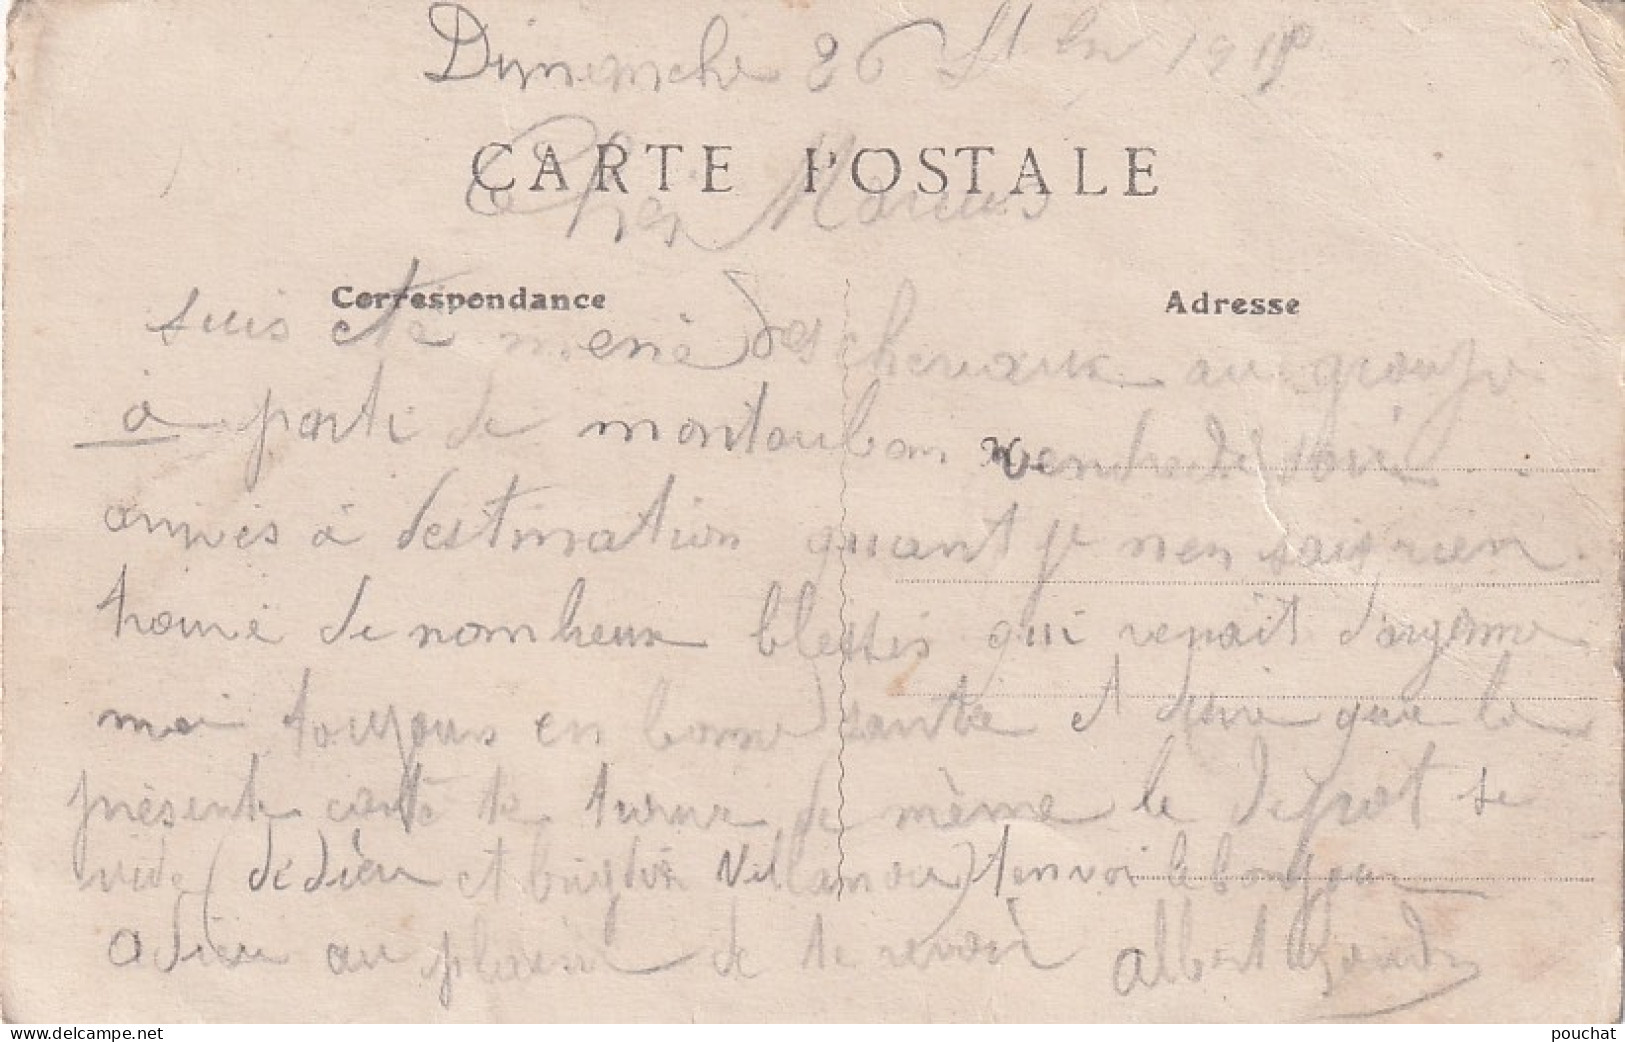 Dimemche 26 1915
CARTE POSTALE
Cher Marius
Correspondance
Adresse
suis eté mené des chevaux au groupe
à parti de montauban vendredi soir
arrivés à destination quant je nen sais rien
trouvé de nombreux blessés qui venait d'argonne
moi toujours en bonne santée et désire que la
présente carte te trouve de même le dépot se
vide (dédieu et Villanova) tenvoi le bonjour
adieu au plaisir de te revoir albert
pouchat
www.delcampe.net